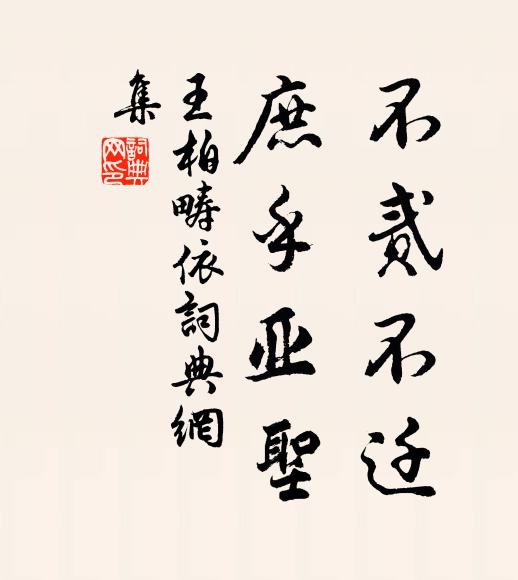 不贰不迁
庶乎亚聖
王柏畴依詞典網
集
詞典網印